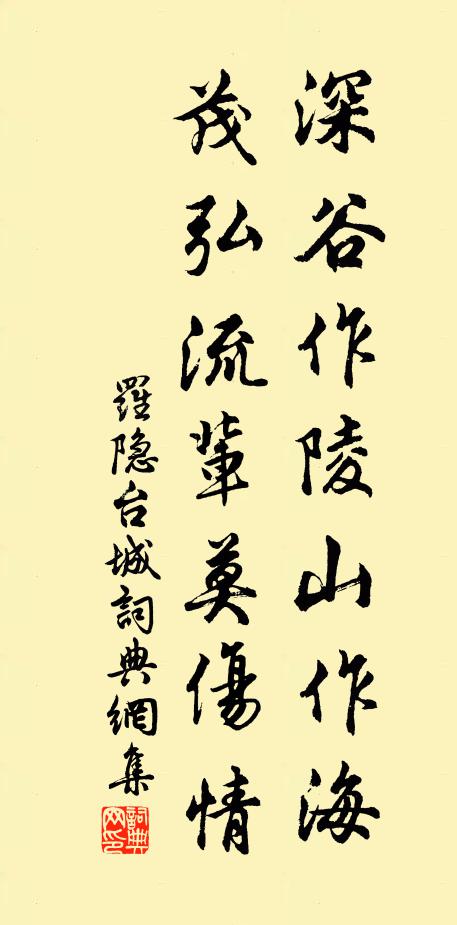 深谷作陵山作海
茂弘流輩莫傷情
羅隐台城詞典網集
詞典網印